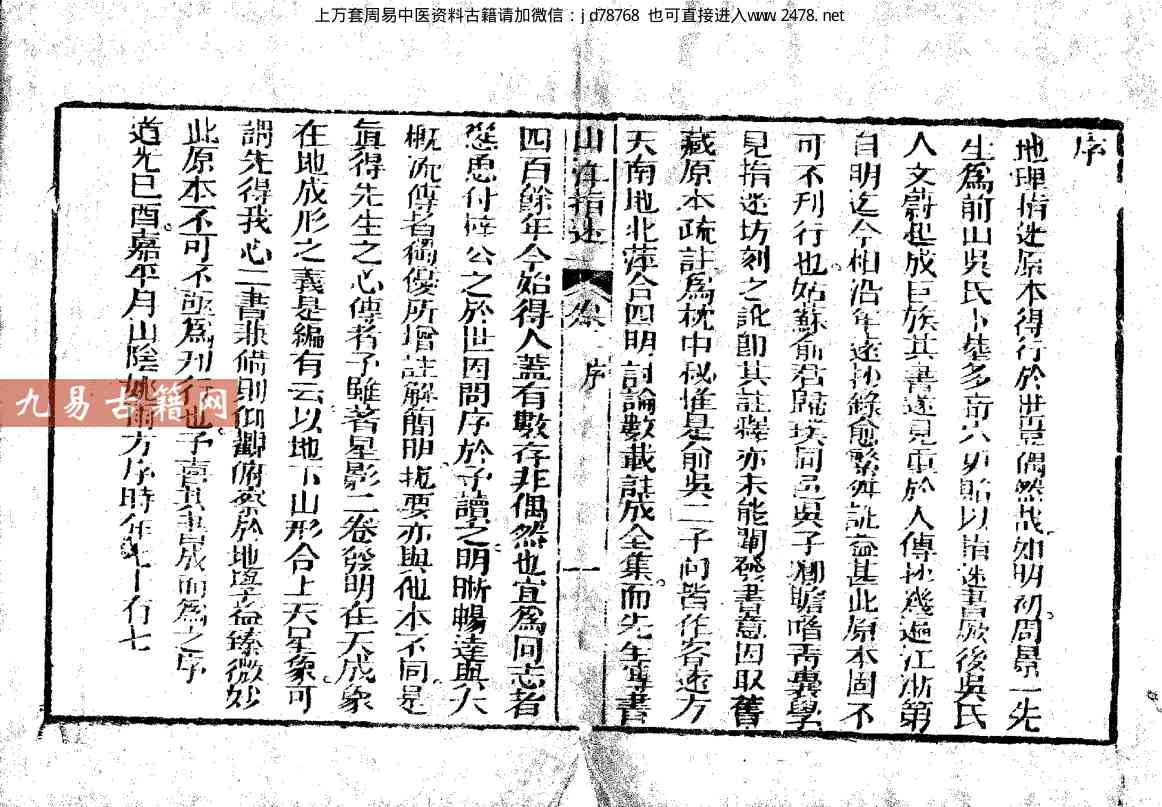 上万套周易中医资料古籍请加微信：jd78768 也可直接进入www.2478.net
序
地理指迷原本得行於世豈偶然哉如明初周景一先
生爲前山吳氏卜基多奇穴貽以指迷書厥後吳氏
人文蔚起成巨族其書遂見重於人傳抄幾遍江浙第
自明迄今相沿年遠抄錄愈繁舛訛益甚此原本固不
可不刊行也姑蘇俞君歸璞同邑吳子瞻嗜靑囊學
見指迷坊刻之訛卽其註釋亦未能闡發書意因取舊
藏原本疏註爲枕中秘惟是俞吳二子向皆作客遠方
天南地北萍合四明討論數載註成全集而先生專書
山洋指迷 序 一
四百餘年今始得人蓋有數存非偶然也宜爲同志者
慫恿付梓公之於世因問序於予讀之明晰暢達與大
概流傳者獨優所增註解簡明拔要亦與他本不同是
眞得先生之心傳者予雖著星影二卷發明在天成象
在地成形之義是編有云以地下山形合上天星象可
謂先得我心二書兼備則仰觀俯察於地學益臻微妙
此原本不可不亟爲刊行也予喜其書成而爲之序
道光巳酉嘉平月山陰姚雨方序時年七十有七
九易古籍网